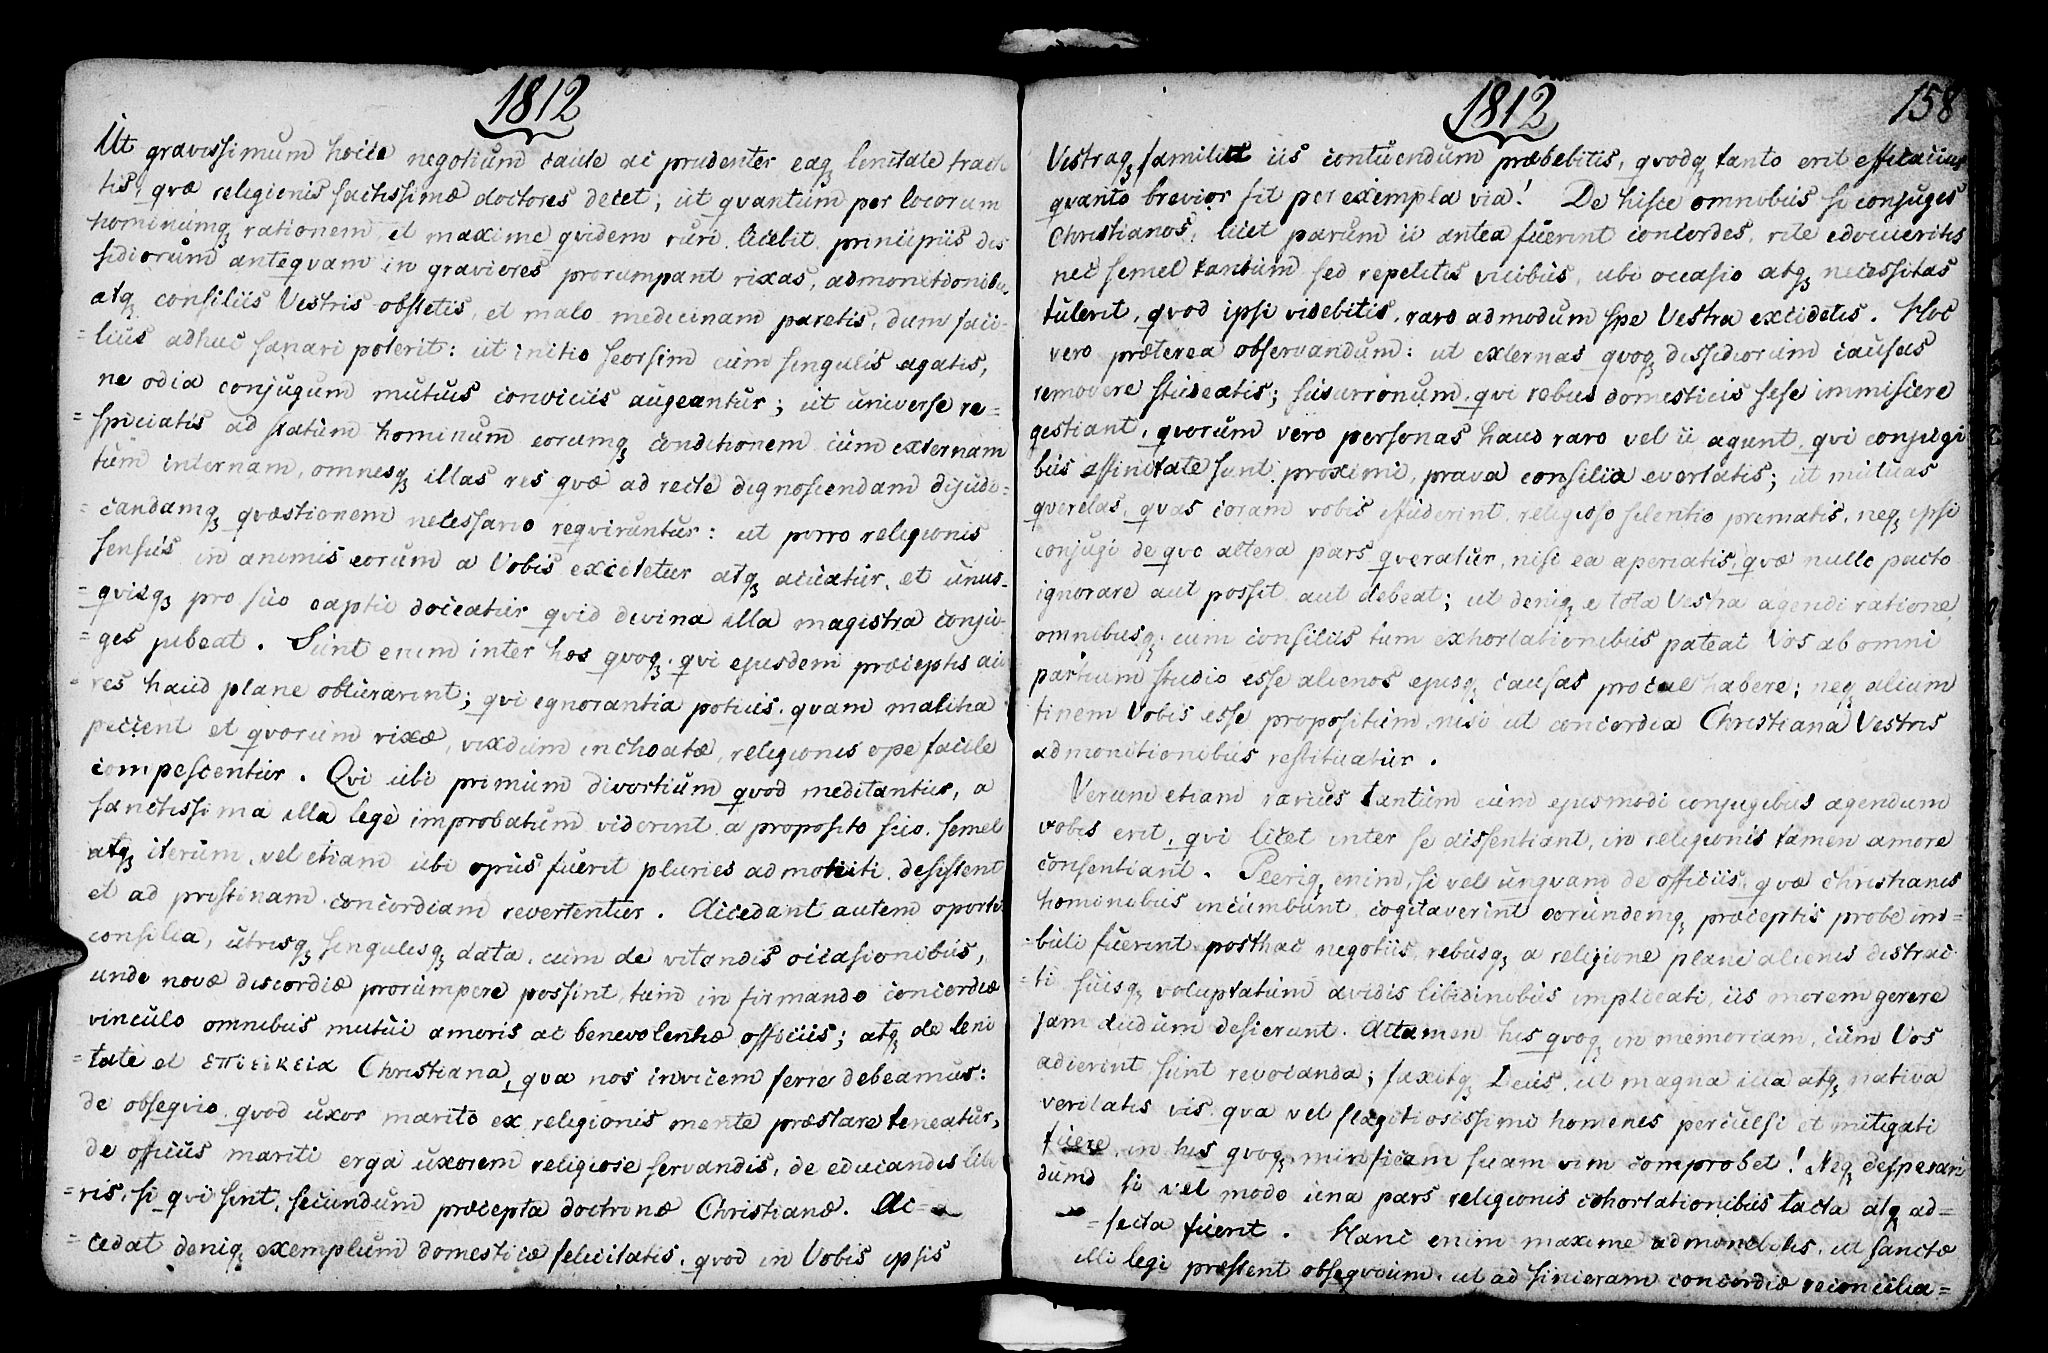 1812
Ut gravissimum hocce negotium caute ac prudenter eaq; lenitate tracte
tis, qvæ religionis sactissimæ doctores decet; ut qvantum per locorum
hominumq; rationem et maxime qvidem ruri licebit principiis dis
sidiorum anteqvam in graviores prorumpant rixas, admonitionibus
atq; consiliis Vestris obstetis, et malo medicinam paretis, dum faci-
-lius adhuc sanari poterit: ut initio seorsim cum singulis agatis,
ne odia conjugum mutuis conviciis augeantur; ut universe re-
=spiciatis ad statum hominum eorumq; conditionem cum externam
tum internam, omnesq; illas res qvæ ad recte dignoscendam dijudi-
-candamq; qvæstionem necessario reqviruntur: ut porro religionis
sensus in animis eorum a Vobis excitetur atq; acuatur, et unus-
-qvisq; pro suo captu doceatur qvid divina illa magistra conju-
=ges jubeat. Sunt enim inter hos qvoq; qvi ejusdem præceptis au
-res haud plane obturarint; qvi ignorantia potius qvam malitia
peccent et qvorum rixæ, vixdum inchoatæ, religionis ope facile
compescentur. Qvi ubi primum divortium qvod meditantur, a
sanctissima illa lege improbatum viderint a proposito suo semel
atq; iterum, vel etiam ubi opus fuerit pluries admoniti desistent
et ad pristinam concordiam revertentur. Accedant autem oportet
consilia, utrisq; singulisq; data, cum de vitandis occasionibus,
unde novæ discordiæ prorumpere possint, tum in firmando concordiæ
vinculo omnibus mutui amoris ac benevolentiæ officiis; atq; de leni
=tate et επιεικεια Christiana, qva nos invicem ferre debeamus:
de obseqvio qvod uxor marito ex religionis mente præstare teneatur,
de officiis mariti erga uxorem religiose servandis, de educandis libe
=ris, si qvi sint, secundum præcepta doctrinæ Christianæ. Ac=
=cedat deniq; exemplum domesticæ felicitatis, qvod in Vobis ipsis
1812
158
Vestraq; familia iis contuendum præbebitis, qvodq; tanto erit efficacius
qvanto brevior sit per exempla via! De hisce omnibus si conjuges
Christianos, licet parum ii antea fuerint concordes, rite edocueritis
nec semel tantum sed repetitis vicibus, ubi occasio atq; necessitas
tulerit, qvod ipsi videbitis, raro admodum spe Vestra excidetis. Hoc
vero præterea observandum: ut externas qvoq; dissidiorum causas
removere studeatis; susurronum, qvi rebus domesticis sese immiscere
gestiant, qvorum vero personas haud raro vel ii agunt qvi conjugi
bus affinitate sunt proximi, prava consilia evertatis; ut mutuas
qverelas, qvas coram vobis effuderint, religioso silentio prematis, neq; ipsi
conjugi de qvo altera pars qveratur, nisi ea aperiatis, qvæ nullo pacto
ignorare aut possit aut debeat; ut deniq; e tota Vestra agendi ratione
omnibusq; cum consiliis tum exhortationibus pateat Vos ab omni
partium studio esse alienos ejusq; causas procul habere; neq; alium
finem Vobis esse propositum, nisi ut concordia Christiana Vestris
admonitionibus restituatur.
Verum etiam rarius tantum cum ejusmodi conjugibus agendum
vobis erit, qvi licet inter se dissentiant, in religionis tamen amore
consentiant. Pleriq; enim, si vel unqvam de officiis, qvæ christianis
hominibus incumbunt cogitaverint eorundemq; præceptis probe im=
-buti fuerint posthac negotiis, rebusq; a religione plane alienis distrac
-ti, suisq; voluptatum avidis libidinibus implicati, iis morem gerere
jam dudum desierunt. Attamen his qvoq; in memoriam, cum Vos
adierint, sunt revocanda; faxitq; Deus, ut magna illa atq; nativa
veritatis vis qva vel flagitiosissimi homines perculsi et mitigati
fuere, in his qvoq; mirificam suam vim comprobet! Neq; desperan
dum si vel modo una pars religionis cohortationibus tacta atq; ad=
=fecta fuerit. Hanc enim maxime admonebitis, ut sanctæ
illi legi præstent obseqvium, ut ad sinceram concordiæ reconcilia=